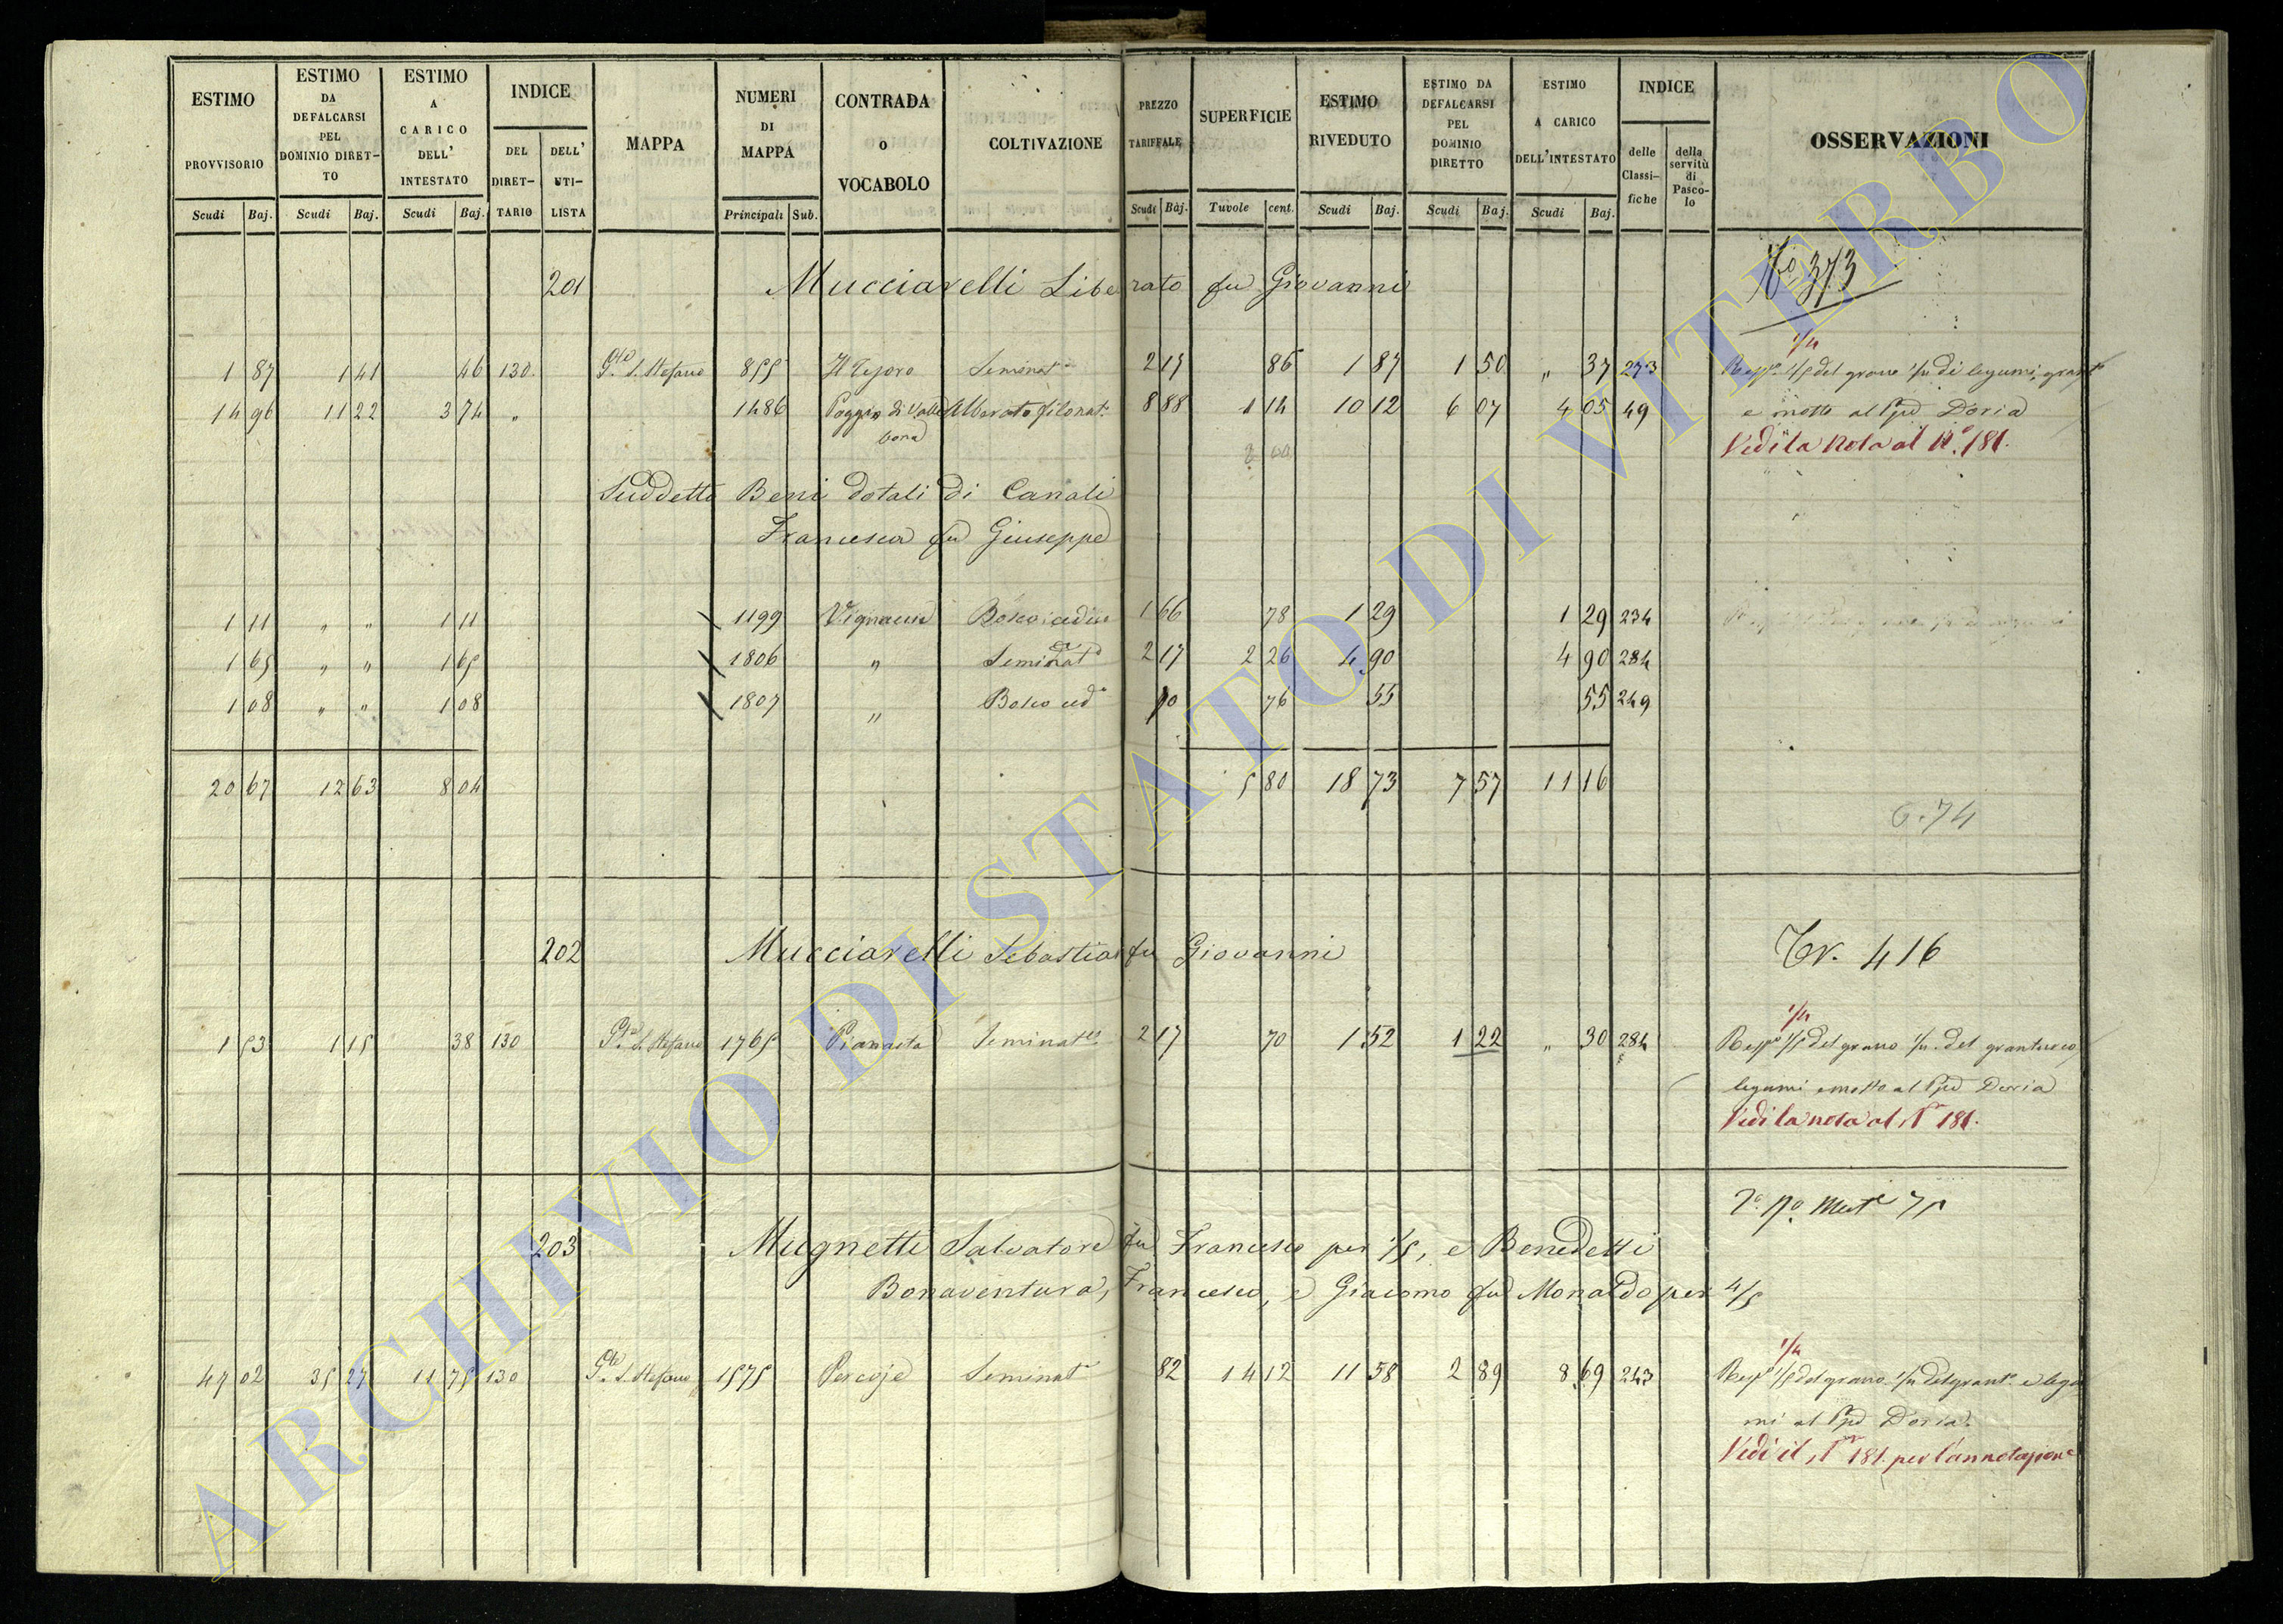 ESTIMO PROVVISORIO Scudi Baj.
ESTIMO DA DEFALCARSI PEL DOMINIO DIRET-TO Scudi Baj.
ESTIMO A CARICO DELL' INTESTATO Scudi Baj.
INDICE DEL DIRET-TARIO DELL' UTI-LISTA
MAPPA
NUMERI DI MAPPA Principali Sub.
CONTRADA O VOCABOLO
COLTIVAZIONE
PREZZO TARIFFALE Scudi Baj.
SUPERFICIE Tavole cent.
ESTIMO RIVEDUTO Scudi Baj.
ESTIMO DA DEFALCARSI PEL DOMINIO DIRETTO Scudi Baj.
ESTIMO A CARICO DELL'INTESTATO Scudi Baj.
INDICE delle Classi-fiche della servitù di Pasco-lo
OSSERVAZIONI
No 373
201 Mucciarelli Liberato fu Giovanni
1/4
1 87 1 41 46 130 Pte S. Stefano 855 Il Tesoro Seminato 2 17 86 1 87 1 50 " 37 273 Rispe 1/5 del grano 1/4 di legumi, grant
14 96 11 22 3 74 " 1486 Poggio di Valle bona Alberato filonato 8 88 1 14 10 12 6 07 4 05 49 e motto al Ppe Doria
Vedi la Nota al No 181.
Suddetto Beni dotali di Canali
Francesca fu Giuseppe
1 11 " " 1 11 1199 Vignaccia Bosco ceduo 1 66 78 1 29 1 29 234
1 65 " " 1 65 1806 " Seminato 2 17 2 26 4 90 4 90 284
1 08 " " 1 08 1807 " Bosco ced 70 76 55 55 249
20 67 12 63 8 04 5 80 18 73 7 57 11 16
6.74
202 Mucciarelli Sebastian fu Giovanni Tr. 416
1/4
1 53 1 15 38 130 Pte S. Stefano 1765 Pianaeta Seminato 2 17 70 1 52 1 22 " 30 284 Rispo 1/5 del grano 1/4 del granturco
legumi e motto al Ppe Doria
Vedi la nota al No 181.
7o No Mute 75
203 Mugnetti Salvatore fu Francesco per 1/5, e Benedetti
Bonaventura, Francesco, e Giacomo fu Monaldo per 4/5
1/4
47 02 35 27 11 75 130 Pte S. Stefano 1575 Percoje Seminato 82 14 12 11 58 2 89 8 69 243 Rispo 1/5 del grano 1/4 del grant. e legu
mi al Ppe Doria.
Vedi il No 181. per l'annotazione
ARCHIVIO DI STATO DI VITERBO